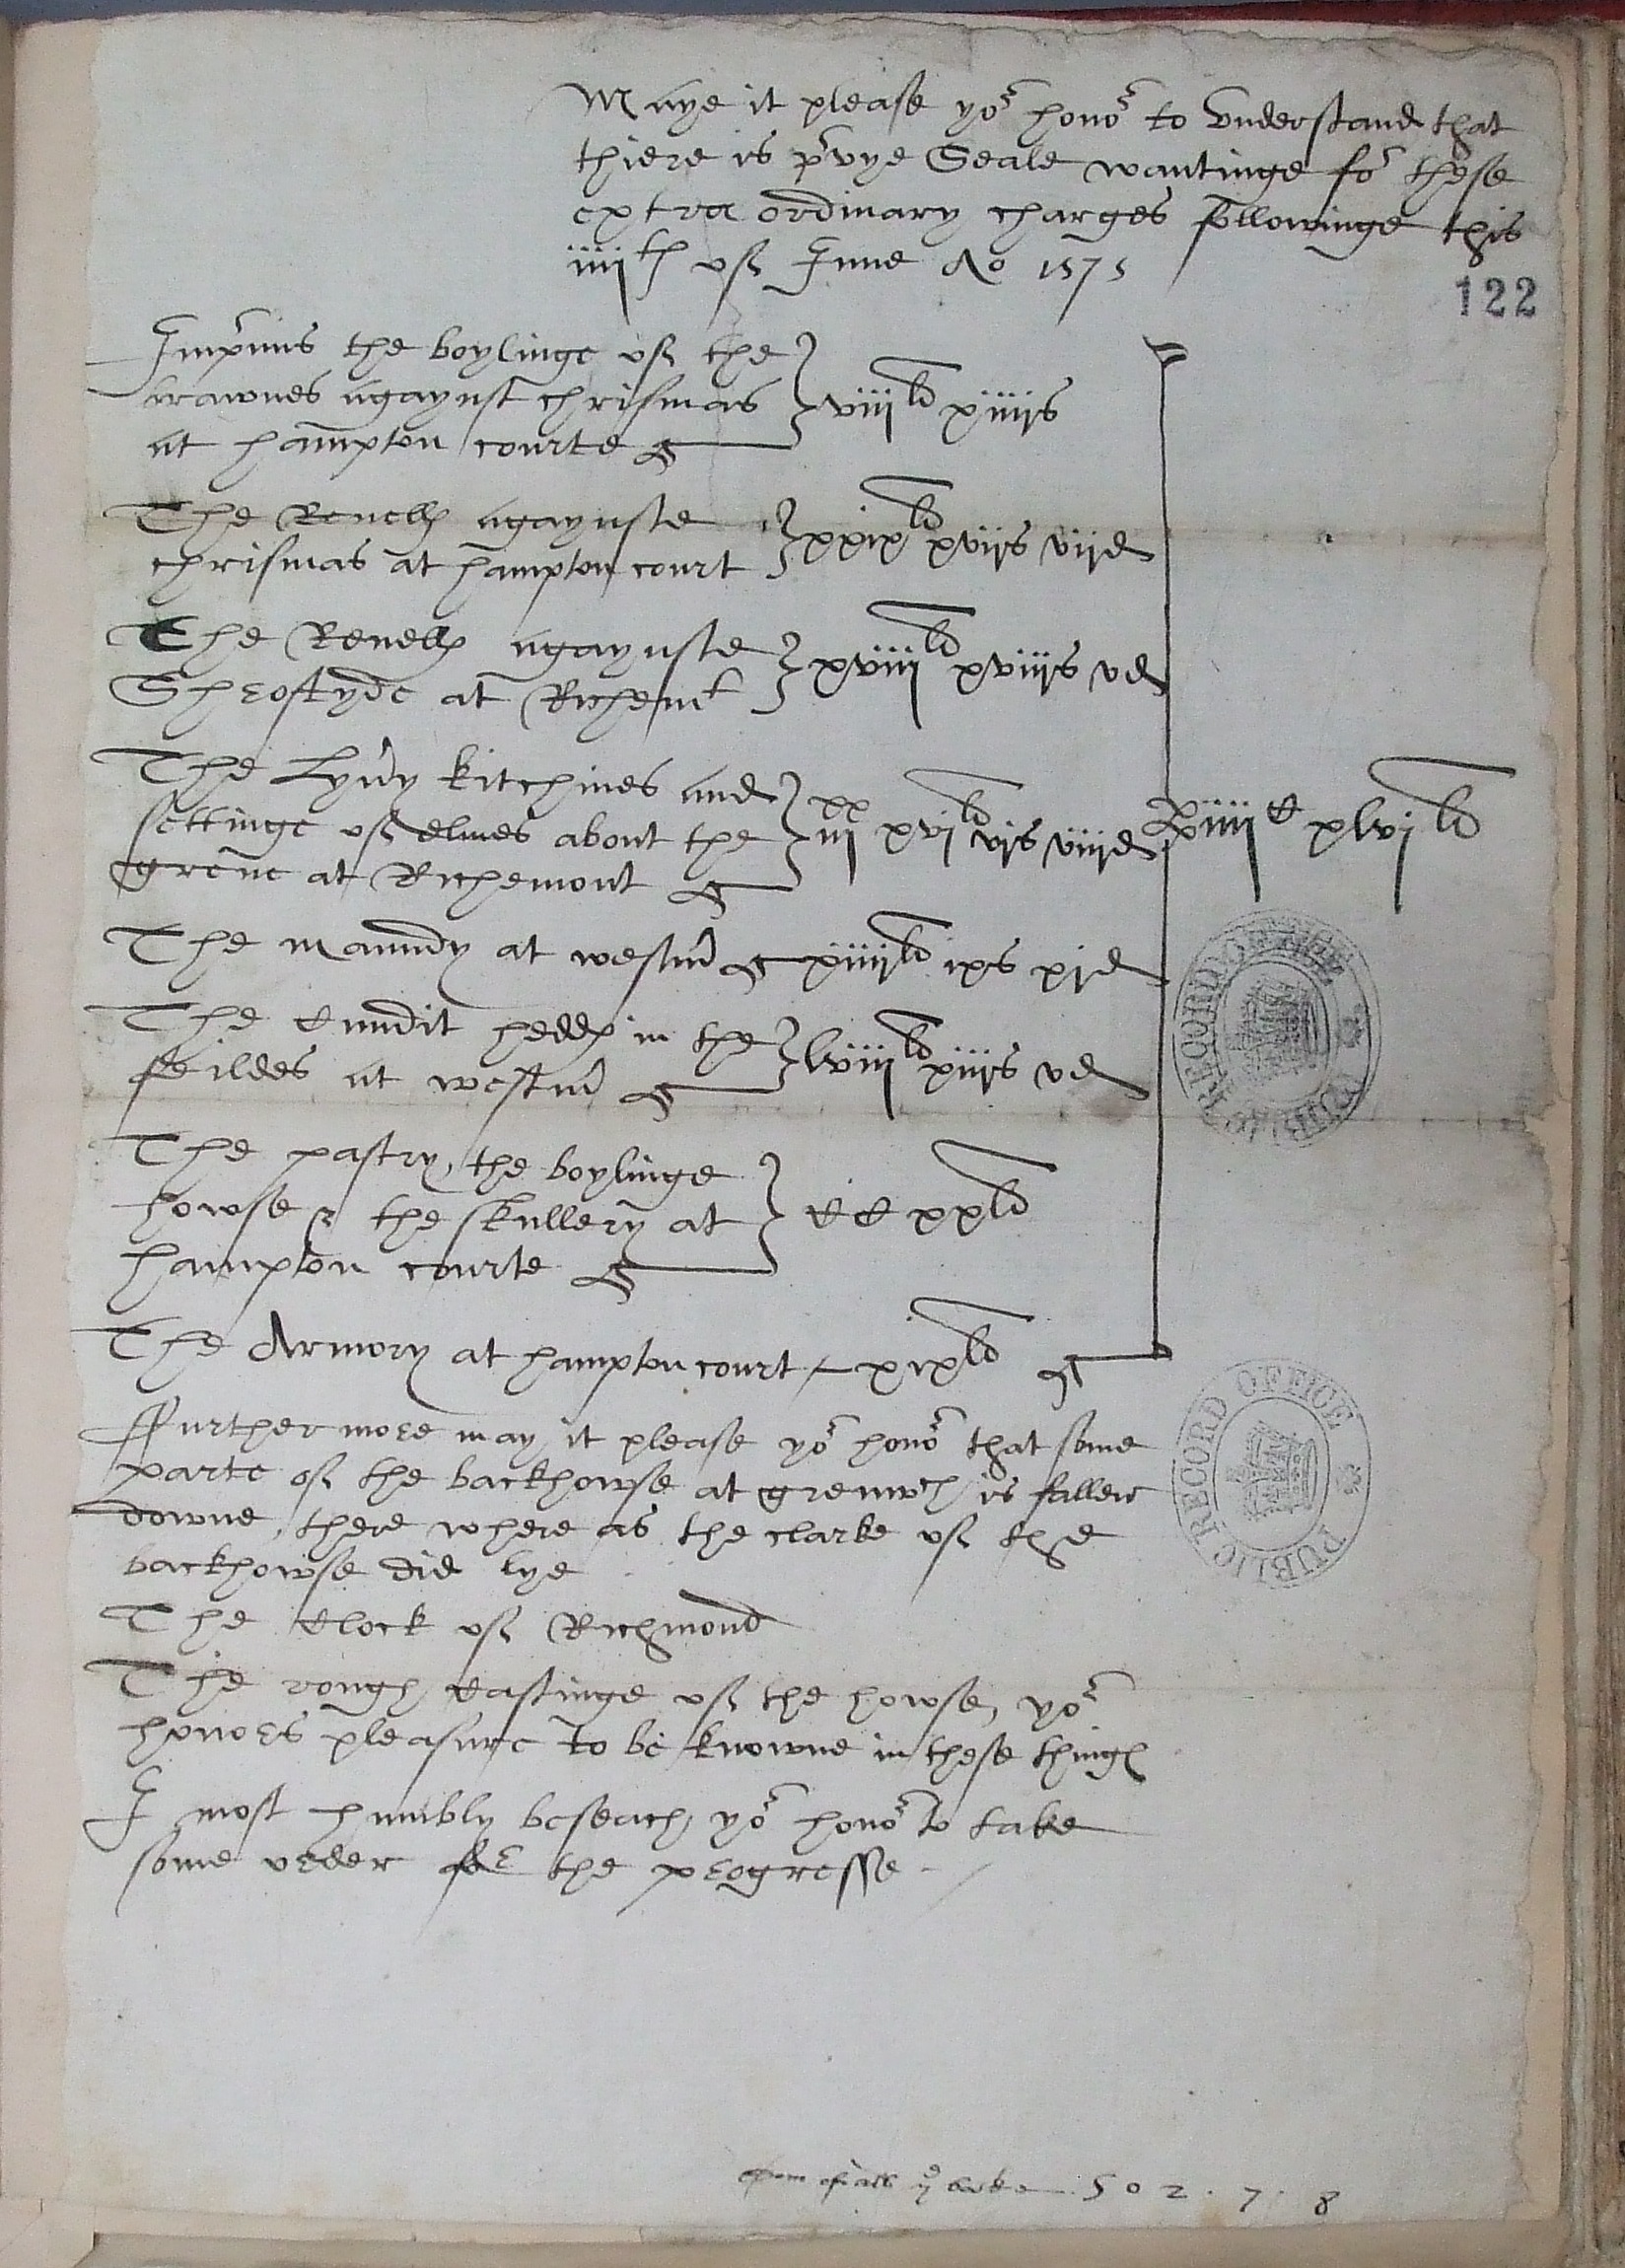 Maye it please yor honor to vnderstand that
thiere is prvye Seale wantinge for these
extra ordinary charges followinge this
iiijth of June Ao 1575
122
Imprimis the boylinge of the
brawnes agaynst chrismas
at hampton courte
viijli xiiijs
The Revells agaynste
chrismas at hampton court
xxixli xvijs vijd
The Revells agaynste
Shroftyde at Richemt
xviijli xviijs vd
The Lyu'y kitchines and
settinge of elmes about the
grene at Richemont
iijxx xvjli vjs viijd
iiijC xlvjli
The Maundy at westm'
xiiijli ixs xjd
The Cundit hedds in the
feildes at westm'
lviijli xiijs vd
The pastry, the boylinge
howse & the skullery at
hampton courte
CC xxli
The Armory at hampton court xixli
ffurthermore may it please yor honor that some
parte of the backhowse at grenwch is fallen
downe, there where as the clarke of the
backhowse did lye
The Clock of Richmond
The rough Castinge of the howse, yor
honors pleasure to be knowne in these things
I most humbly beseach yor honor to take
some order for the progresse
of all ye 502 . 7 . 8
PUBLIC RECORD OFFICE
PUBLIC RECORD OFFICE